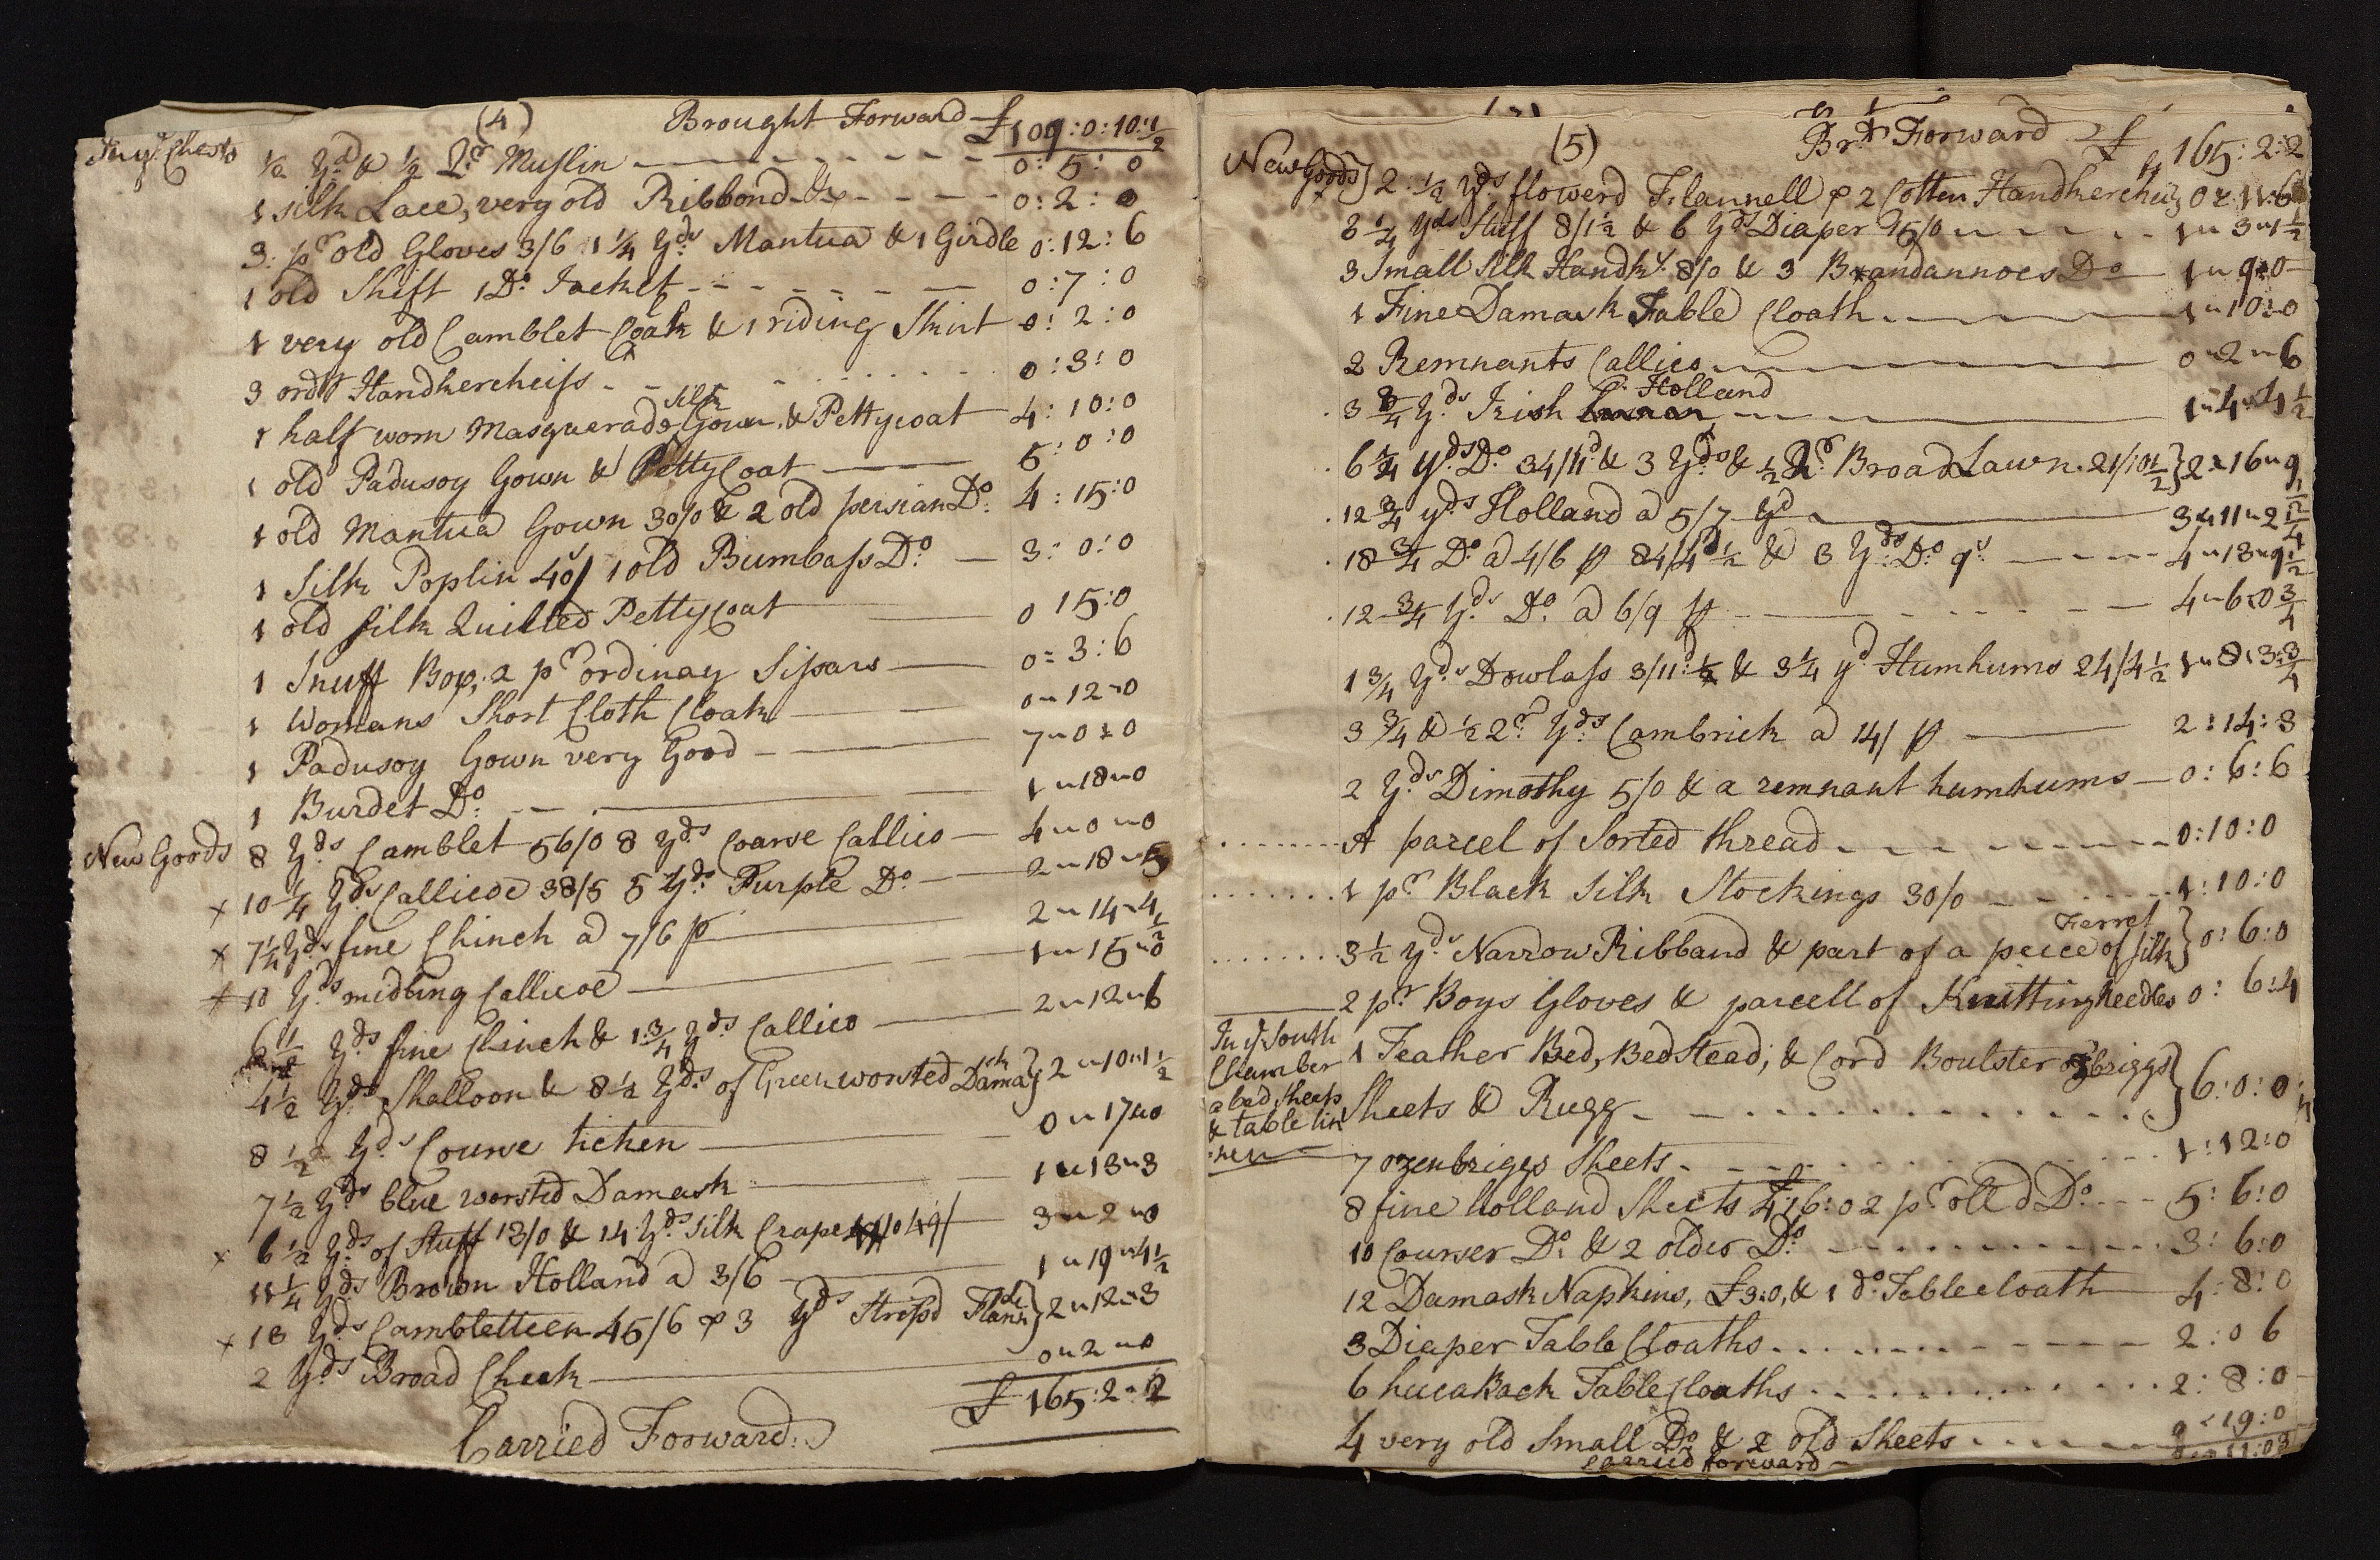 (4) Brought Forward £109:0:10:1/2
In ye Chests 1/2 Yd & 1/2 Qr Muslin 0:5:0
1 silk Lace, very old Ribbond &c 0:2:0
3 pr old Gloves 3/6 1 1/4 Yds Mantua & 1 Girdle 0:12:6
1 old Shift 1 Do Jacket 0:7:0
1 very old Camblet Coak & 1 riding Skirt 0:2:0
3 ordy Handkercheifs 0:3:0
1 half worn Masquerade silk Gown & Pettycoat 4:10:0
1 old Padusoy Gown & PettyCoat 5:0:0
1 old Mantua Gown 30/0 & 2 old persian Do 4:15:0
1 Silk Poplin 40/ 1 old Bumbass Do 3:0:0
1 old silk Quilted PettyCoat 0 15:0
1 Snuff Box, 2 pr ordinay Sissars 0=3:6
1 Womans Short Cloth Cloak 0"12"0
1 Padusoy Gown very Good 7"0:0
1 Burdet Do 1"18"0
New Goods 8 Yds Camblet 56/0 8 Yds Coarse Callico 4"0"0
x 10 1/4 Yds Callicoe 38/5 5 Yds Purple Do 2"18"5
x 7 1/4 Yds fine Chinch a 7/6 p 2"14"4 1/2
10 Yds midling Callicoe 1"15"0
6 1/2 Yds fine Chinch & 1 3/4 Yds Callico 2"12"6
4 1/2 Yds Shalloon & 8 1/2 Yds of Green worsted Damask } 2"10"1 1/2
8 1/2 Yds Course ticken 0"17"0
7 1/2 Yds blue worsted Damask 1"13"3
x 6 1/2 Yds of Stuff 13/0 & 14 Yds Silk Crape 49/ 3"2"0
11 1/4 Yds Brown Holland a 3/6 1"19"4 1/2
x 18 Yds Cambletteen 45/6 & 3 Yds Stripd Flanl } 2"12"3
2 Yds Broad Check 0"2"0
£165:2"2
Carried Forward
(5) Brt Forward £ 165:2:2
New Goods } 2 1/2 Yds flowerd Flannell & 2 Cotten Handkercheifs 0:11:6
3 1/4 Yds Stuff 8/1 1/2 & 6 Yds Diaper 15/0 1"3"1 1/2
3 Small Silk Handkfs 8/0 & 3 Brandannoes Do 1"9:0
1 Fine Damask Table Cloath 1"10:0
2 Remnants Callico 0"2"6
3 3/4 Yds Irish Holland 1"4"4 1/2
6 1/4 Yds Do 34/11d & 3 Yds & 1/2 Qr Broad Lawn 21/10 1/2 } 2:16"9 1/2
12 3/4 yds Holland a 5/7 Yd 3"11"2 1/4
18 3/4 Do a 4/6 p 84/4 1/2 & 3 Yds Do 9s 4"13"9 1/2
12 3/4 Yds Do a 6/9 p 4"6:0 3/4
1 3/4 Yds Dowlass 3/11 1/4 & 3 1/4 yd Humhums 24/4 1/2 1"8:3 3/4
3 3/4 & 1/2 2r Yds Cambrick a 14/ p 2:14:3
2 Yds Dimothy 5/0 & a remnant humhums 0:6:6
A parcel of Sorted thread 0:10:0
1 pr Black Silk Stockings 30/0 1:10:0
3 1/2 Yds Narrow Ribband & part of a peice of silk Ferret } 0:6:0
2 pr Boys Gloves & parcell of Knitting Needles 0:6:4
In ye South Chamber a bed sheets & table linnen
1 Feather Bed, Bedstead, & Cord Boulster ozbriggs
Sheets & Rugg } 6:0:0
7 ozenbriggs Sheets 1:12:0
8 fine holland Sheets £4:16:0 2 pr olld Do 5:6:0
10 Courser Do & 2 older Do 3:6:0
12 Damask Napkins, £3:0, & 1 do Table cloath 4:8:0
3 Diaper Table Cloaths 2:0 6
6 hucaBack Table Cloaths 2:8:0
4 very old Small Do & 2 old Sheets 0:19:0
Carried forward